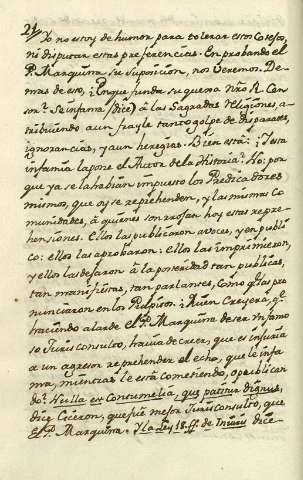 24
Yo no estoy de humor para tolerar esos
ni disputar estas preferencias. En probando el
P. Marquina su suposicion, nos veremos. De-
mas de eso, ¿en que funda su quexa nro R. Cen-
sor? Se infama (dice) á las Sagradas Religiones, a-
tribuiendo a un frayle tanto golpe de disparates,
ignorancias, y aun heregias. Bien está: ¿I esta
infamia la pone el Autor de la Historia? No: por
que ya se la habian impuesto los Predicadores
mismos, que oy se reprehenden, y las mismas Co-
munidades, á quienes son rofas hoy estas repre-
hensiones. Ellos las publicaron a voces, y en públi-
co: ellos las aprobaron: ellos las imprimieron,
y ellos las dejaron á la posteridad tan publicas,
tan manifiestas, tan parlantes, como q.do las pro-
nunciaron en los Pulpitos. ¿Quien creyera, q.e
haciendo alarde el P. Marquina de ser in famo-
so Juris consulto, havia de creer, que es injuria
a un agresor reprehender el echo, que le infa-
ma, mientras le está cometiendo, o publican-
do? Nulla ex contumelia, que patitur dignus,
dice Ciceron, que fue mejor Jurisconsulto, que
el P. Marquina. Y la Ley 18. ff. de Iniuriis dice